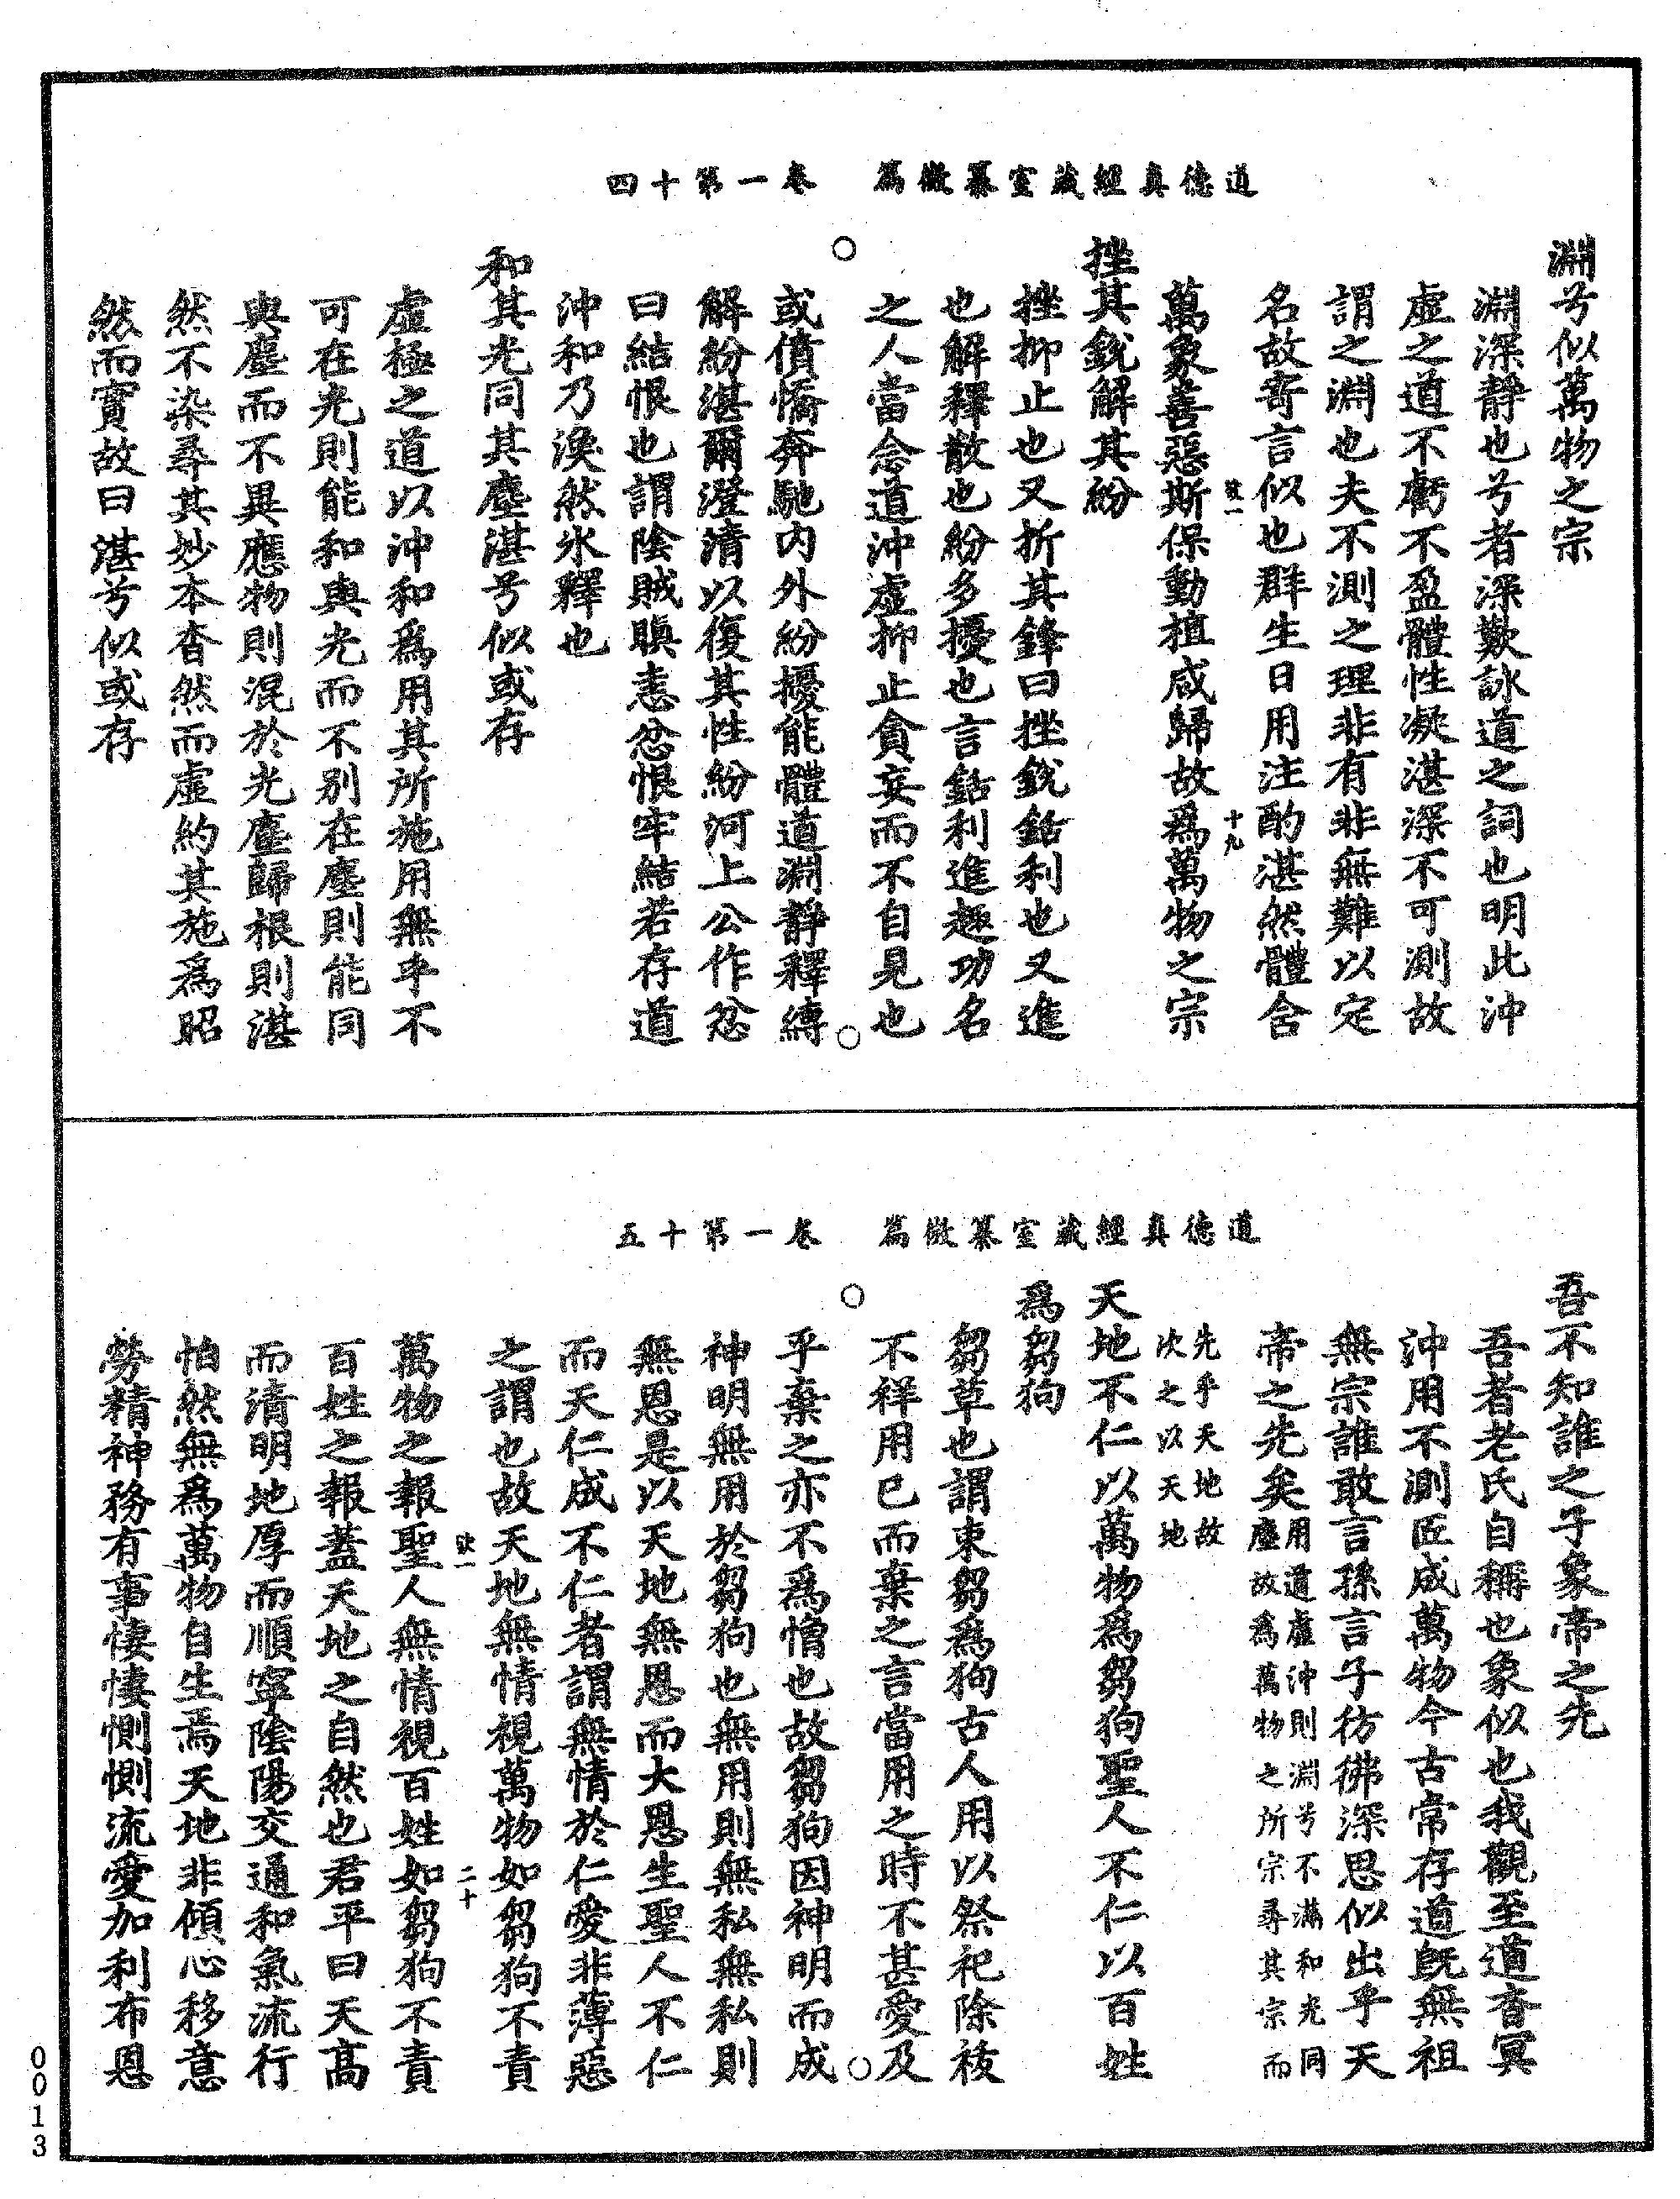 道德真經藏室纂微篇　卷一第十四
淵兮似萬物之宗
淵深靜也兮者深歎詠道之詞也明此沖
虛之道不虧不盈體性凝湛深不可測故
謂之淵也夫不測之理非有非無難以定
名故寄言似也群生日用注酌湛然體含
萬象善惡斯保動植咸歸故爲萬物之宗
十九
挫其銳解其紛
挫抑止也又折其鋒曰挫銳銛利也又進
也解釋散也紛多擾也言銛利進趣功名
之人當念道沖虛抑止貪妄而不自見也
或憤憍奔馳內外紛擾能體道淵靜釋縛
解紛湛爾澄清以復其性紛河上公作忿
曰結恨也謂陰賊瞋恚忿恨牢結若存道
沖和乃渙然氷釋也
和其光同其塵湛兮似或存
虛極之道以沖和爲用其所施用無乎不
可在光則能和與光而不別在塵則能同
與塵而不異應物則混於光塵歸根則湛
然不染尋其妙本杳然而虛約其施爲昭
然而實故曰湛兮似或存
道德真經藏室纂微篇　卷一第十五
吾不知誰之子象帝之先
吾者老氏自稱也象似也我觀至道杳冥
沖用不測匠成萬物今古常存道旣無祖
無宗誰敢言孫言子彷彿深思似出乎天
帝之先矣用道虛沖則淵兮不滿和光同
塵故爲萬物之所宗尋其宗而
先乎天地故
次之以天地
天地不仁以萬物爲芻狗聖人不仁以百姓
爲芻狗
芻草也謂束芻爲狗古人用以祭祀除祓
不祥用已而棄之言當用之時不甚愛及
乎棄之亦不爲憎也故芻狗因神明而成
神明無用於芻狗也無用則無私無私則
無恩是以天地無恩而大恩生聖人不仁
而天仁成不仁者謂無情於仁愛非薄惡
之謂也故天地無情視萬物如芻狗不責
二十
萬物之報聖人無情視百姓如芻狗不責
百姓之報蓋天地之自然也君平曰天高
而清明地厚而順寧陰陽交通和氣流行
怕然無爲萬物自生焉天地非傾心移意
勞精神務有事悽悽惻惻流愛加利布恩
0013